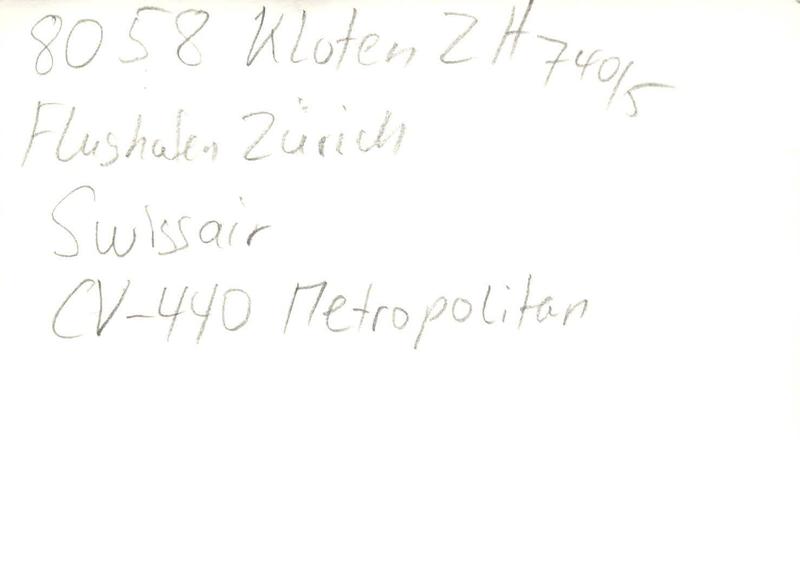 8058 Kloten ZH 740/5
Flughafen Zürich
Swissair
CV-440 Metropolitan